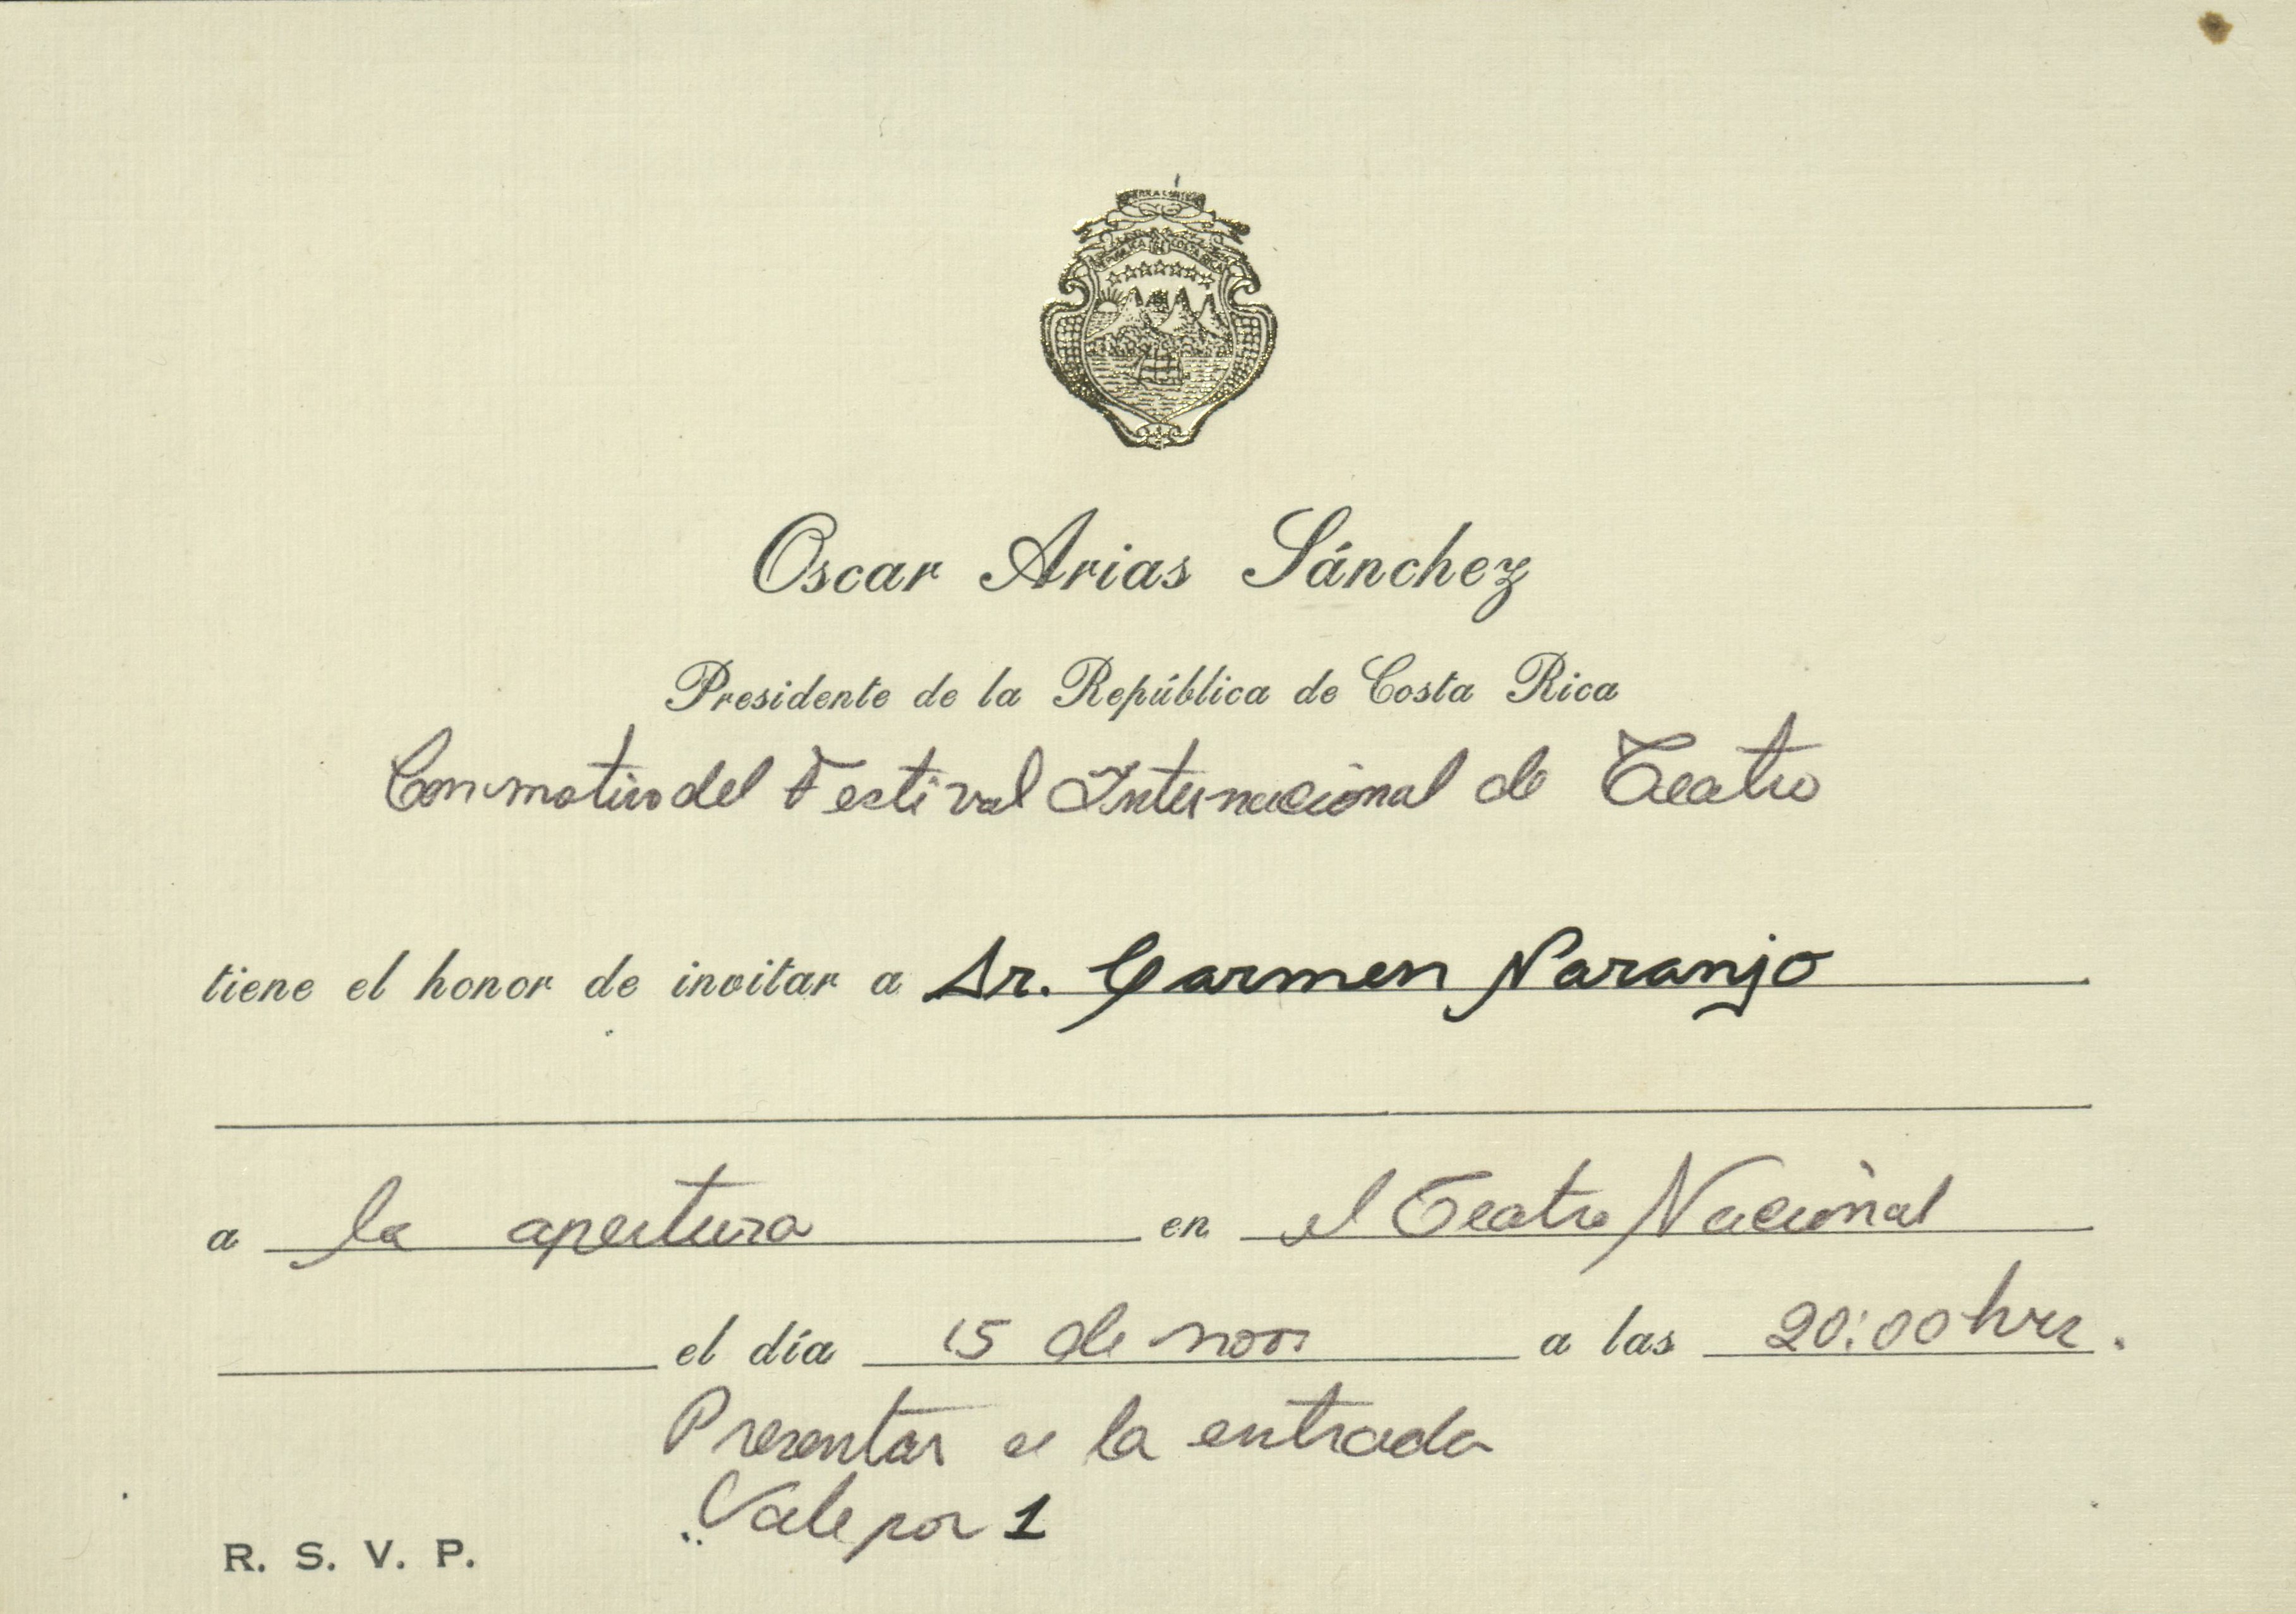 Oscar Arias Sánchez
Presidente de la República de Costa Rica
Con motivo del Festival Internacional de Teatro
tiene el honor de invitar a Sr. Carmen Naranjo
a la apertura en el Teatro Nacional
el día 15 de nov a las 20:00 hrs.
Presentar a la entrada
Vale por 1
R. S. V. P.